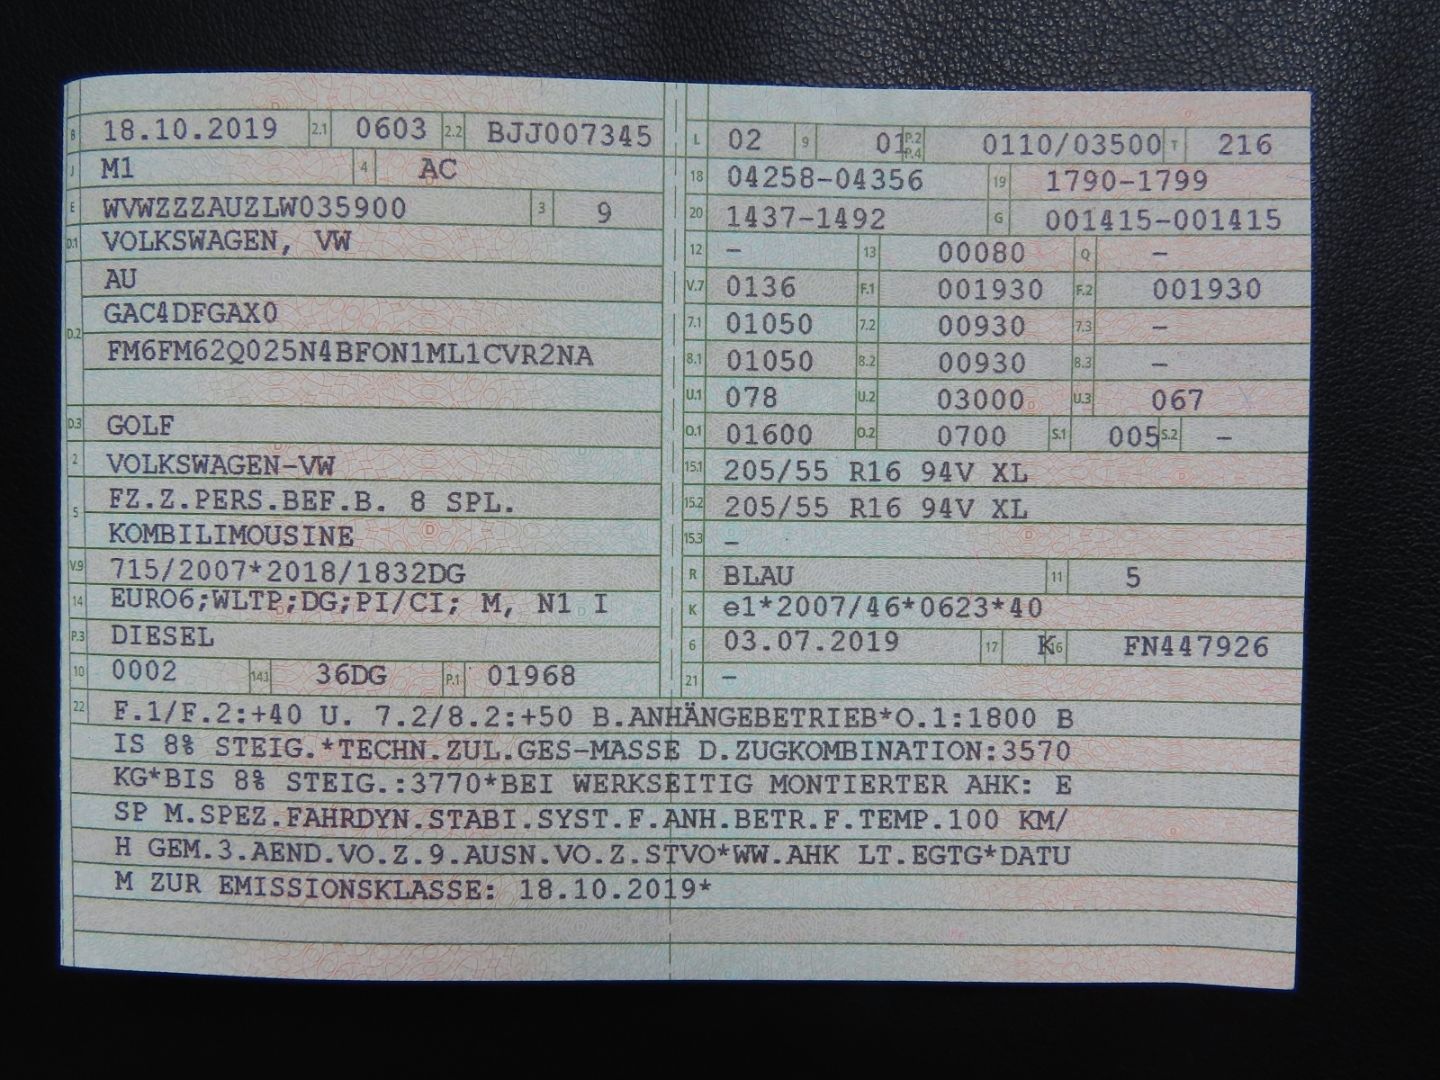 B 18.10.2019 2.1 0603 2.2 BJJ007345
J M1 4 AC
E WVWZZZAUZLW035900 3 9
D.1 VOLKSWAGEN, VW
D.2 AU
GAC4DFGAX0
FM6FM62Q025N4BFON1ML1CVR2NA
D.3 GOLF
2 VOLKSWAGEN-VW
5 FZ.Z.PERS.BEF.B. 8 SPL.
KOMBILIMOUSINE
V.9 715/2007*2018/1832DG
14 EURO6;WLTP;DG;PI/CI; M, N1 I
P.3 DIESEL
10 0002 14.1 36DG P.1 01968
L 02 9 01 P.2 P.4 0110/03500 T 216
18 04258-04356 19 1790-1799
20 1437-1492 G 001415-001415
12 - 13 00080 Q -
V.7 0136 F.1 001930 F.2 001930
7.1 01050 7.2 00930 7.3 -
8.1 01050 8.2 00930 8.3 -
U.1 078 U.2 03000 U.3 067
O.1 01600 O.2 0700 S.1 005 S.2 -
15.1 205/55 R16 94V XL
15.2 205/55 R16 94V XL
15.3 -
R BLAU 11 5
K e1*2007/46*0623*40
6 03.07.2019 17 K 16 FN447926
21 -
22 F.1/F.2:+40 U. 7.2/8.2:+50 B.ANHÄNGEBETRIEB*O.1:1800 B
IS 8% STEIG.*TECHN.ZUL.GES-MASSE D.ZUGKOMBINATION:3570
KG*BIS 8% STEIG.:3770*BEI WERKSEITIG MONTIERTER AHK: E
SP M.SPEZ.FAHRDYN.STABI.SYST.F.ANH.BETR.F.TEMP.100 KM/
H GEM.3.AEND.VO.Z.9.AUSN.VO.Z.STVO*WW.AHK LT.EGTG*DATU
M ZUR EMISSIONSKLASSE: 18.10.2019*